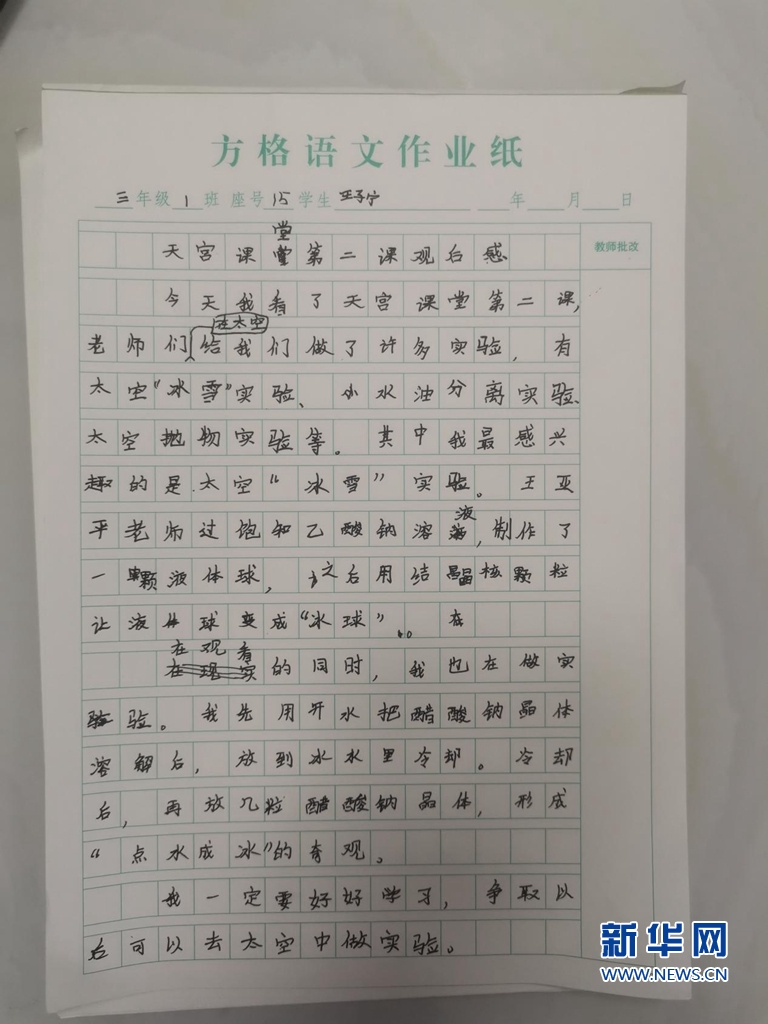 方格语文作业纸
三年级1班 座号15学生王子宁 年 月 日
教师批改
堂
天宫课堂第二课观后感
今天我看了天宫课堂第二课,
在太空
老师们给我们做了许多实验，有
太空“冰雪”实验、小水油分离实验、
太空抛物实验等。其中我最感兴
趣的是太空“冰雪”实验。王亚
液
平老师过饱和乙酸钠溶，制作了
一颗液体球，之后用结晶核颗粒
让液体球变成“冰球”。
在观看
在现实的同时，我也在做实
验。我先用开水把醋酸钠晶体
溶解后，放到冰水里冷却。冷却
后，再放几粒醋酸钠晶体，形成
“点水成冰”的奇观。
我一定要好好学习，争取以
后可以去太空中做实验。
新华网
WWW.NEWS.CN